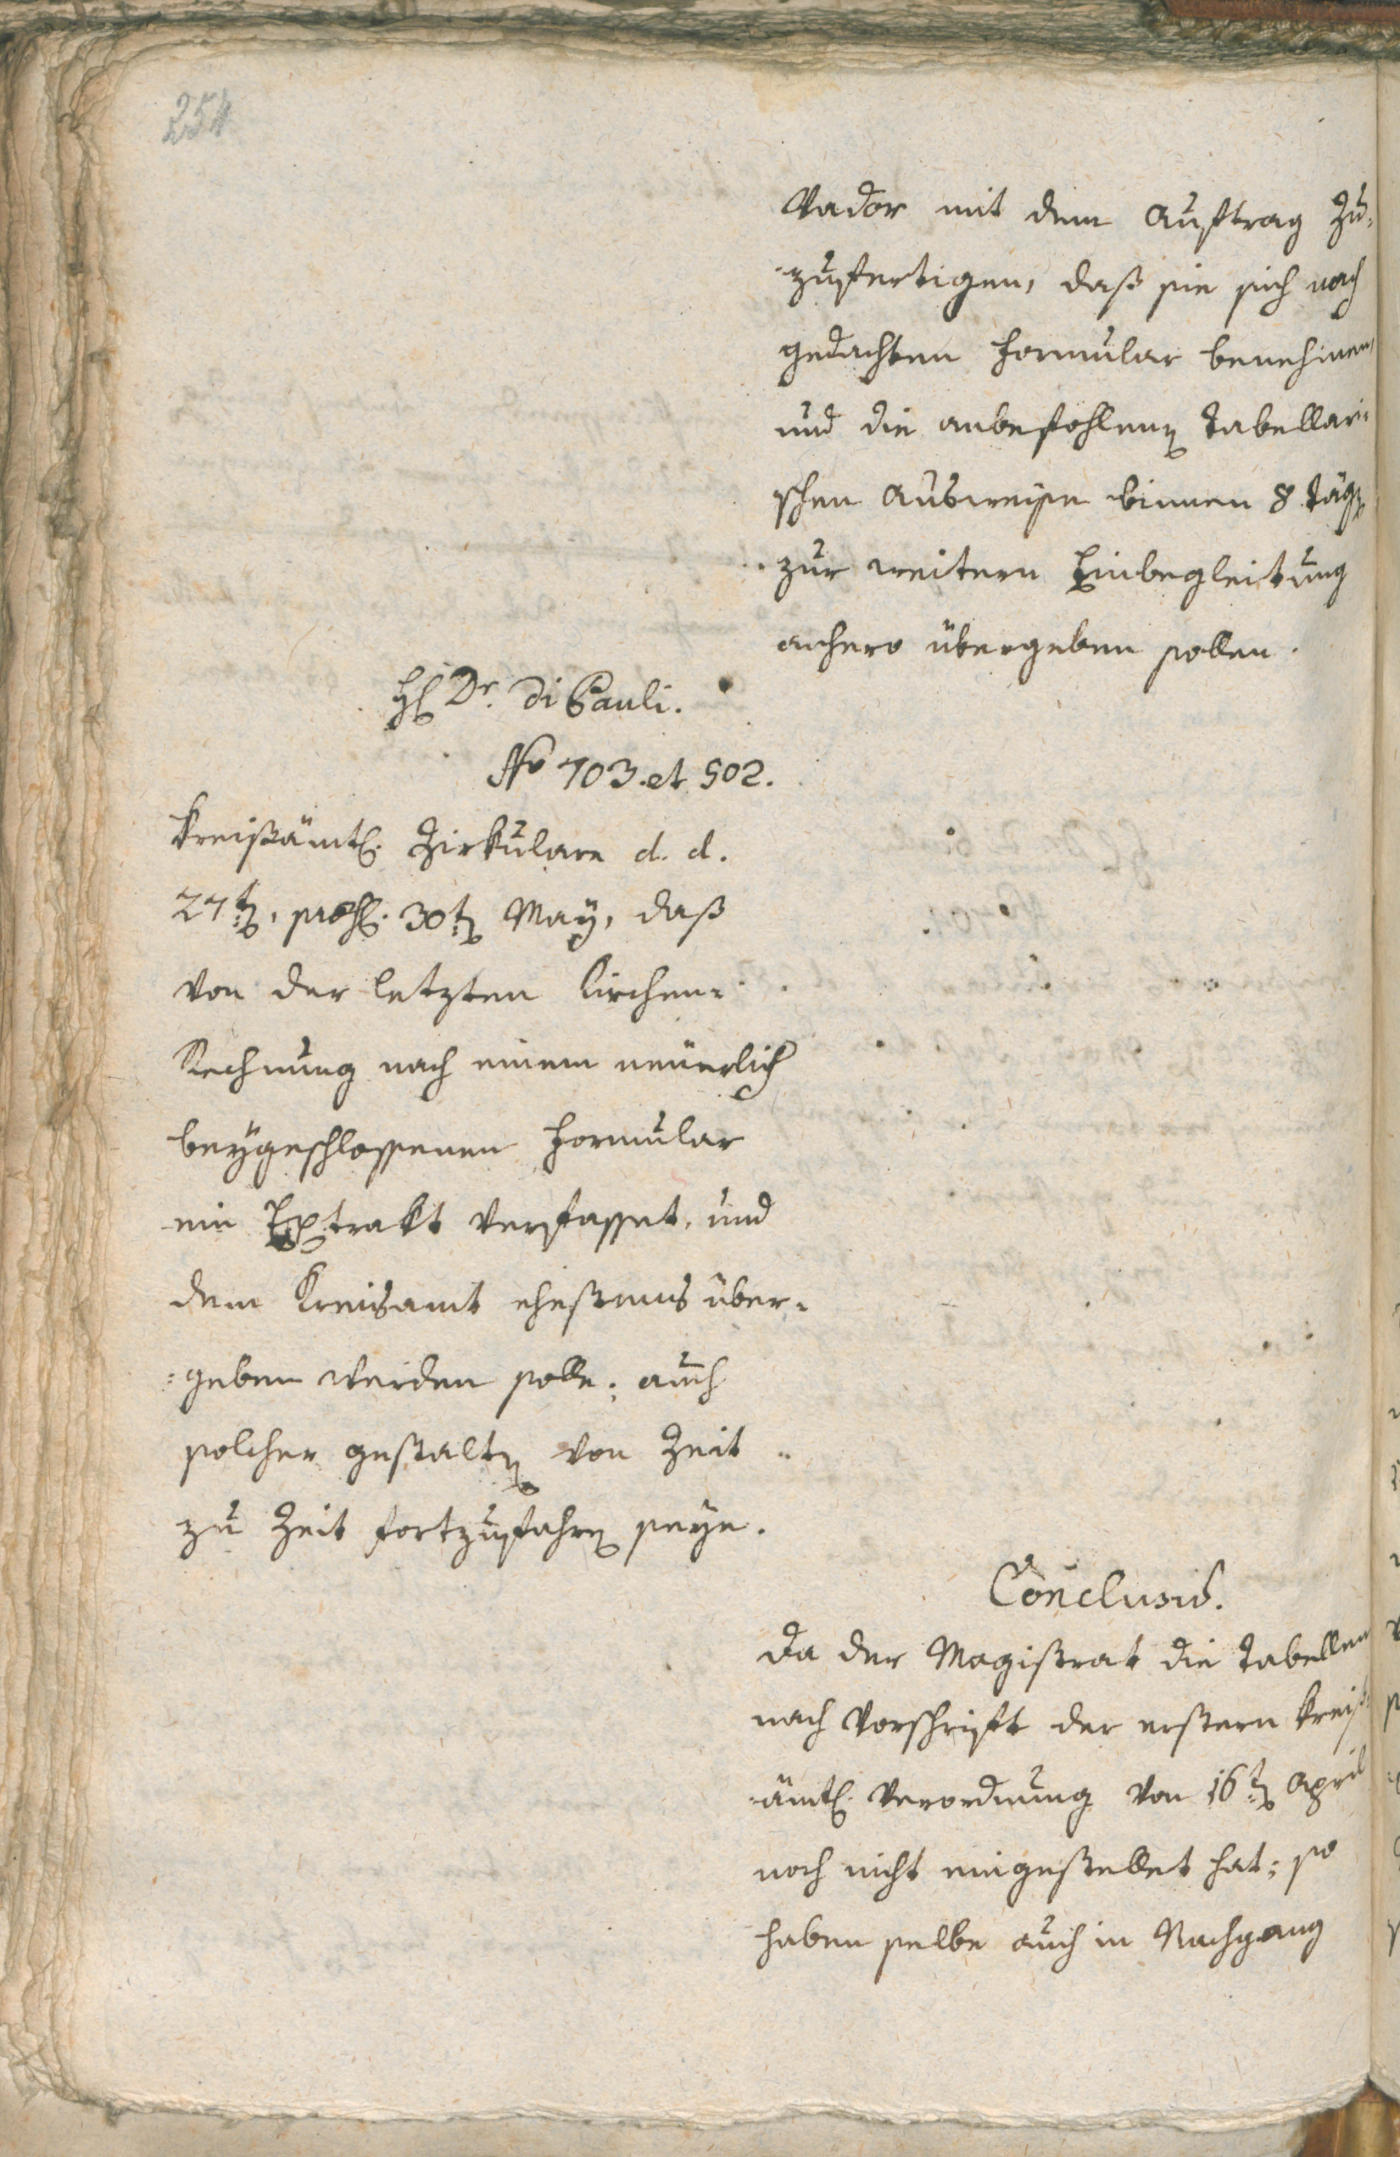 254
Vador mit dem Auftrag zu-
zufertigen, daß sie sich nach
gedachten Formular benehmen,
und die anbefohlenen Tabellari-
schen Ausweise binnen 8 Tägen
zur weitern Einbegleitung
anhero übergeben sollen.
H. Dr. Di Pauli.
No 703. et 502.
Kreißämtl. Zirkulare d. d.
27ten, 30ten May, daß
von der letzten Kirchen-
Rechnung nach einem neuerlich
beygeschlossenen Formular
ein Extrakt verfasset, und
dem Kreisamt ehestens über-
geben werden solle; auch
solcher gestalten von Zeit
zu Zeit fortzufahren seye.
Conclusio.
Da der Magistrat die Tabellen
nach Vorschrift der erstern Kreiß-
ämtl. Verordnung von 16ten April
noch nicht eingestellet hat; so
haben selbe auch in Nachgang